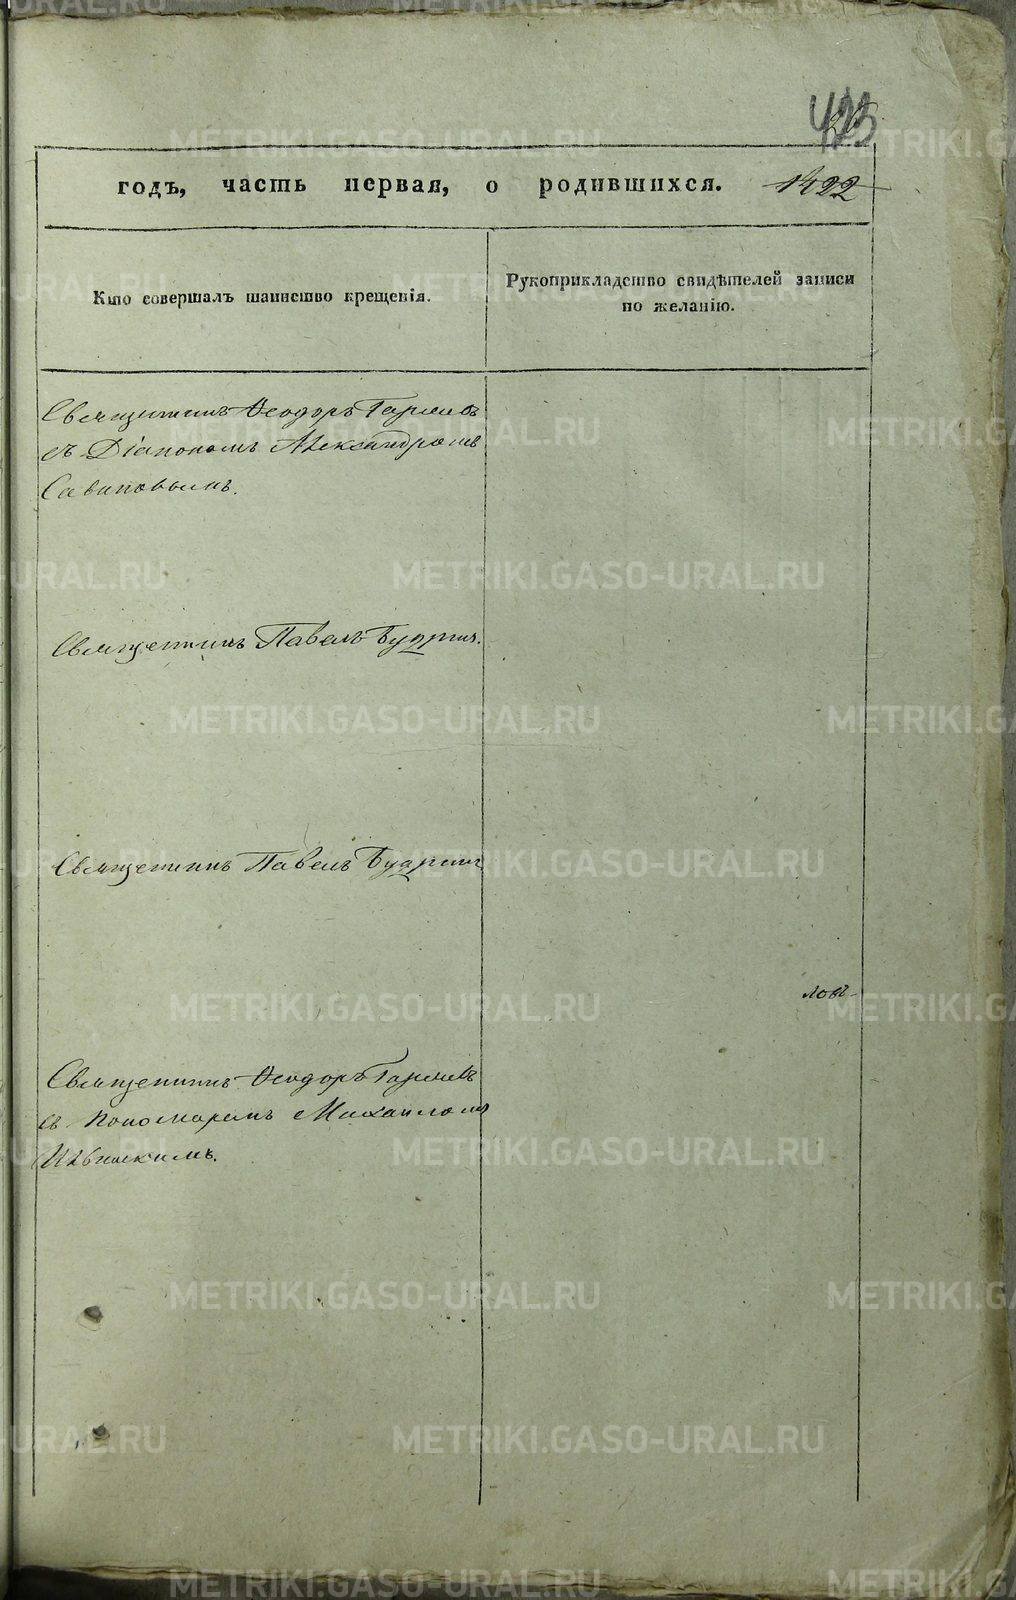 годъ, часть первая, о родившихся. 1422
Кто совершалъ таинство крещенія.
Рукоприкладство свидѣтелей записи
по желанію.
Священникъ Ѳеодоръ
съ Діакономъ Александромъ
Савиновымъ.
Священникъ Павелъ Будринъ.
Священникъ Павелъ Будринъ
ловъ
Священникъ Ѳеодоръ
съ Пономаремъ Михаиломъ
METRIKI.GASO-URAL.RU